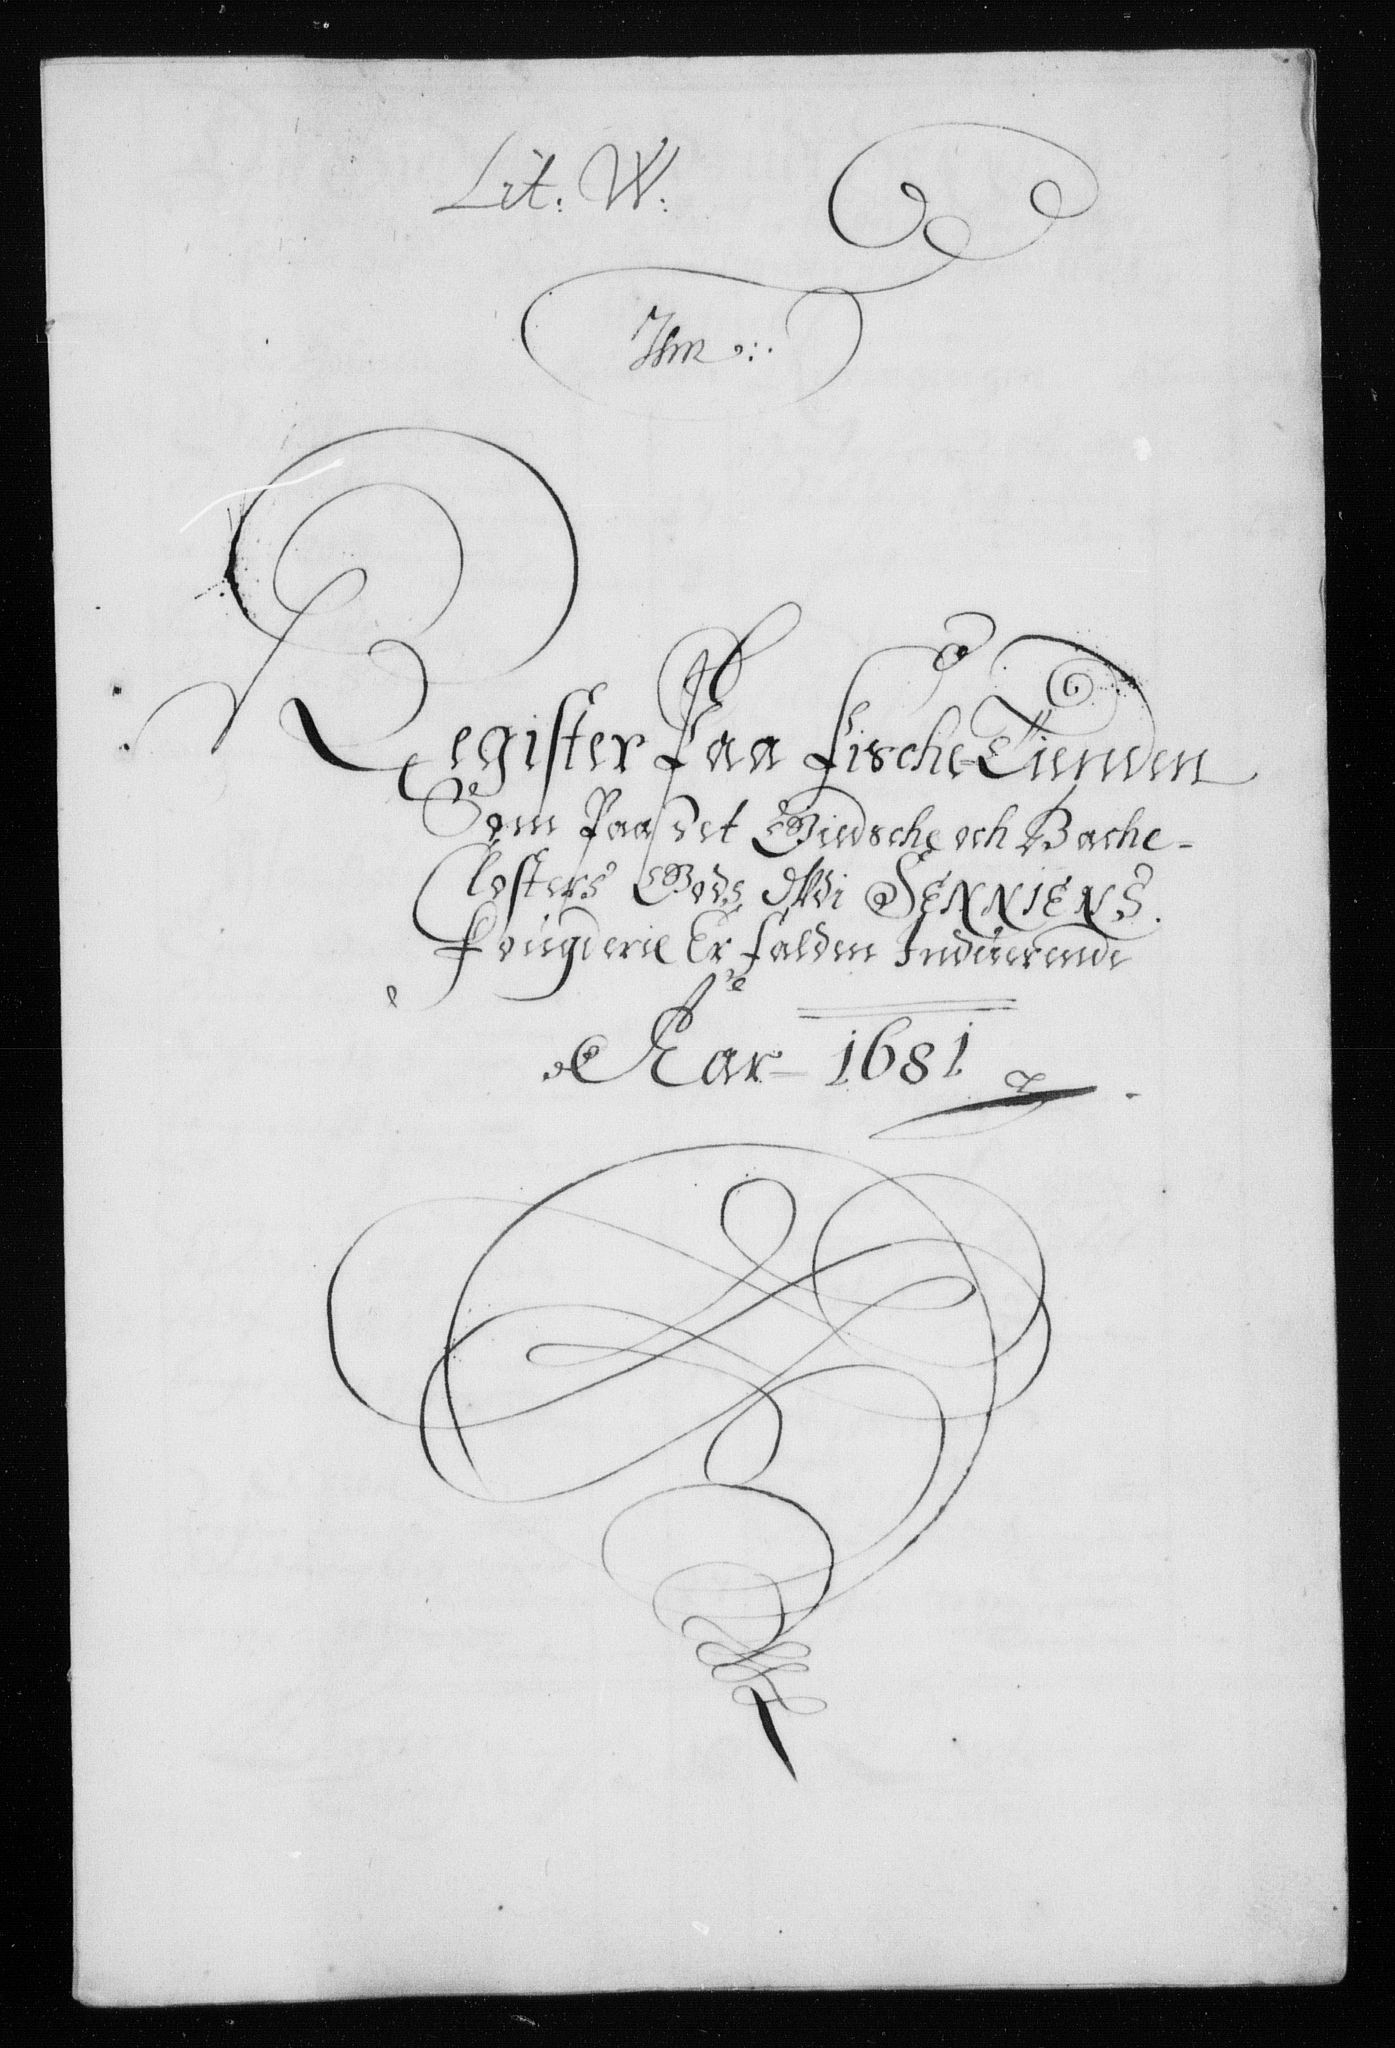 Lit: W:
Register Paa Fische-Tienden
Som Paa det Giedsche och Bache-
Closters Gods Udi SENNIENS
Fougderie Er falden Indeverende
Aar 1681